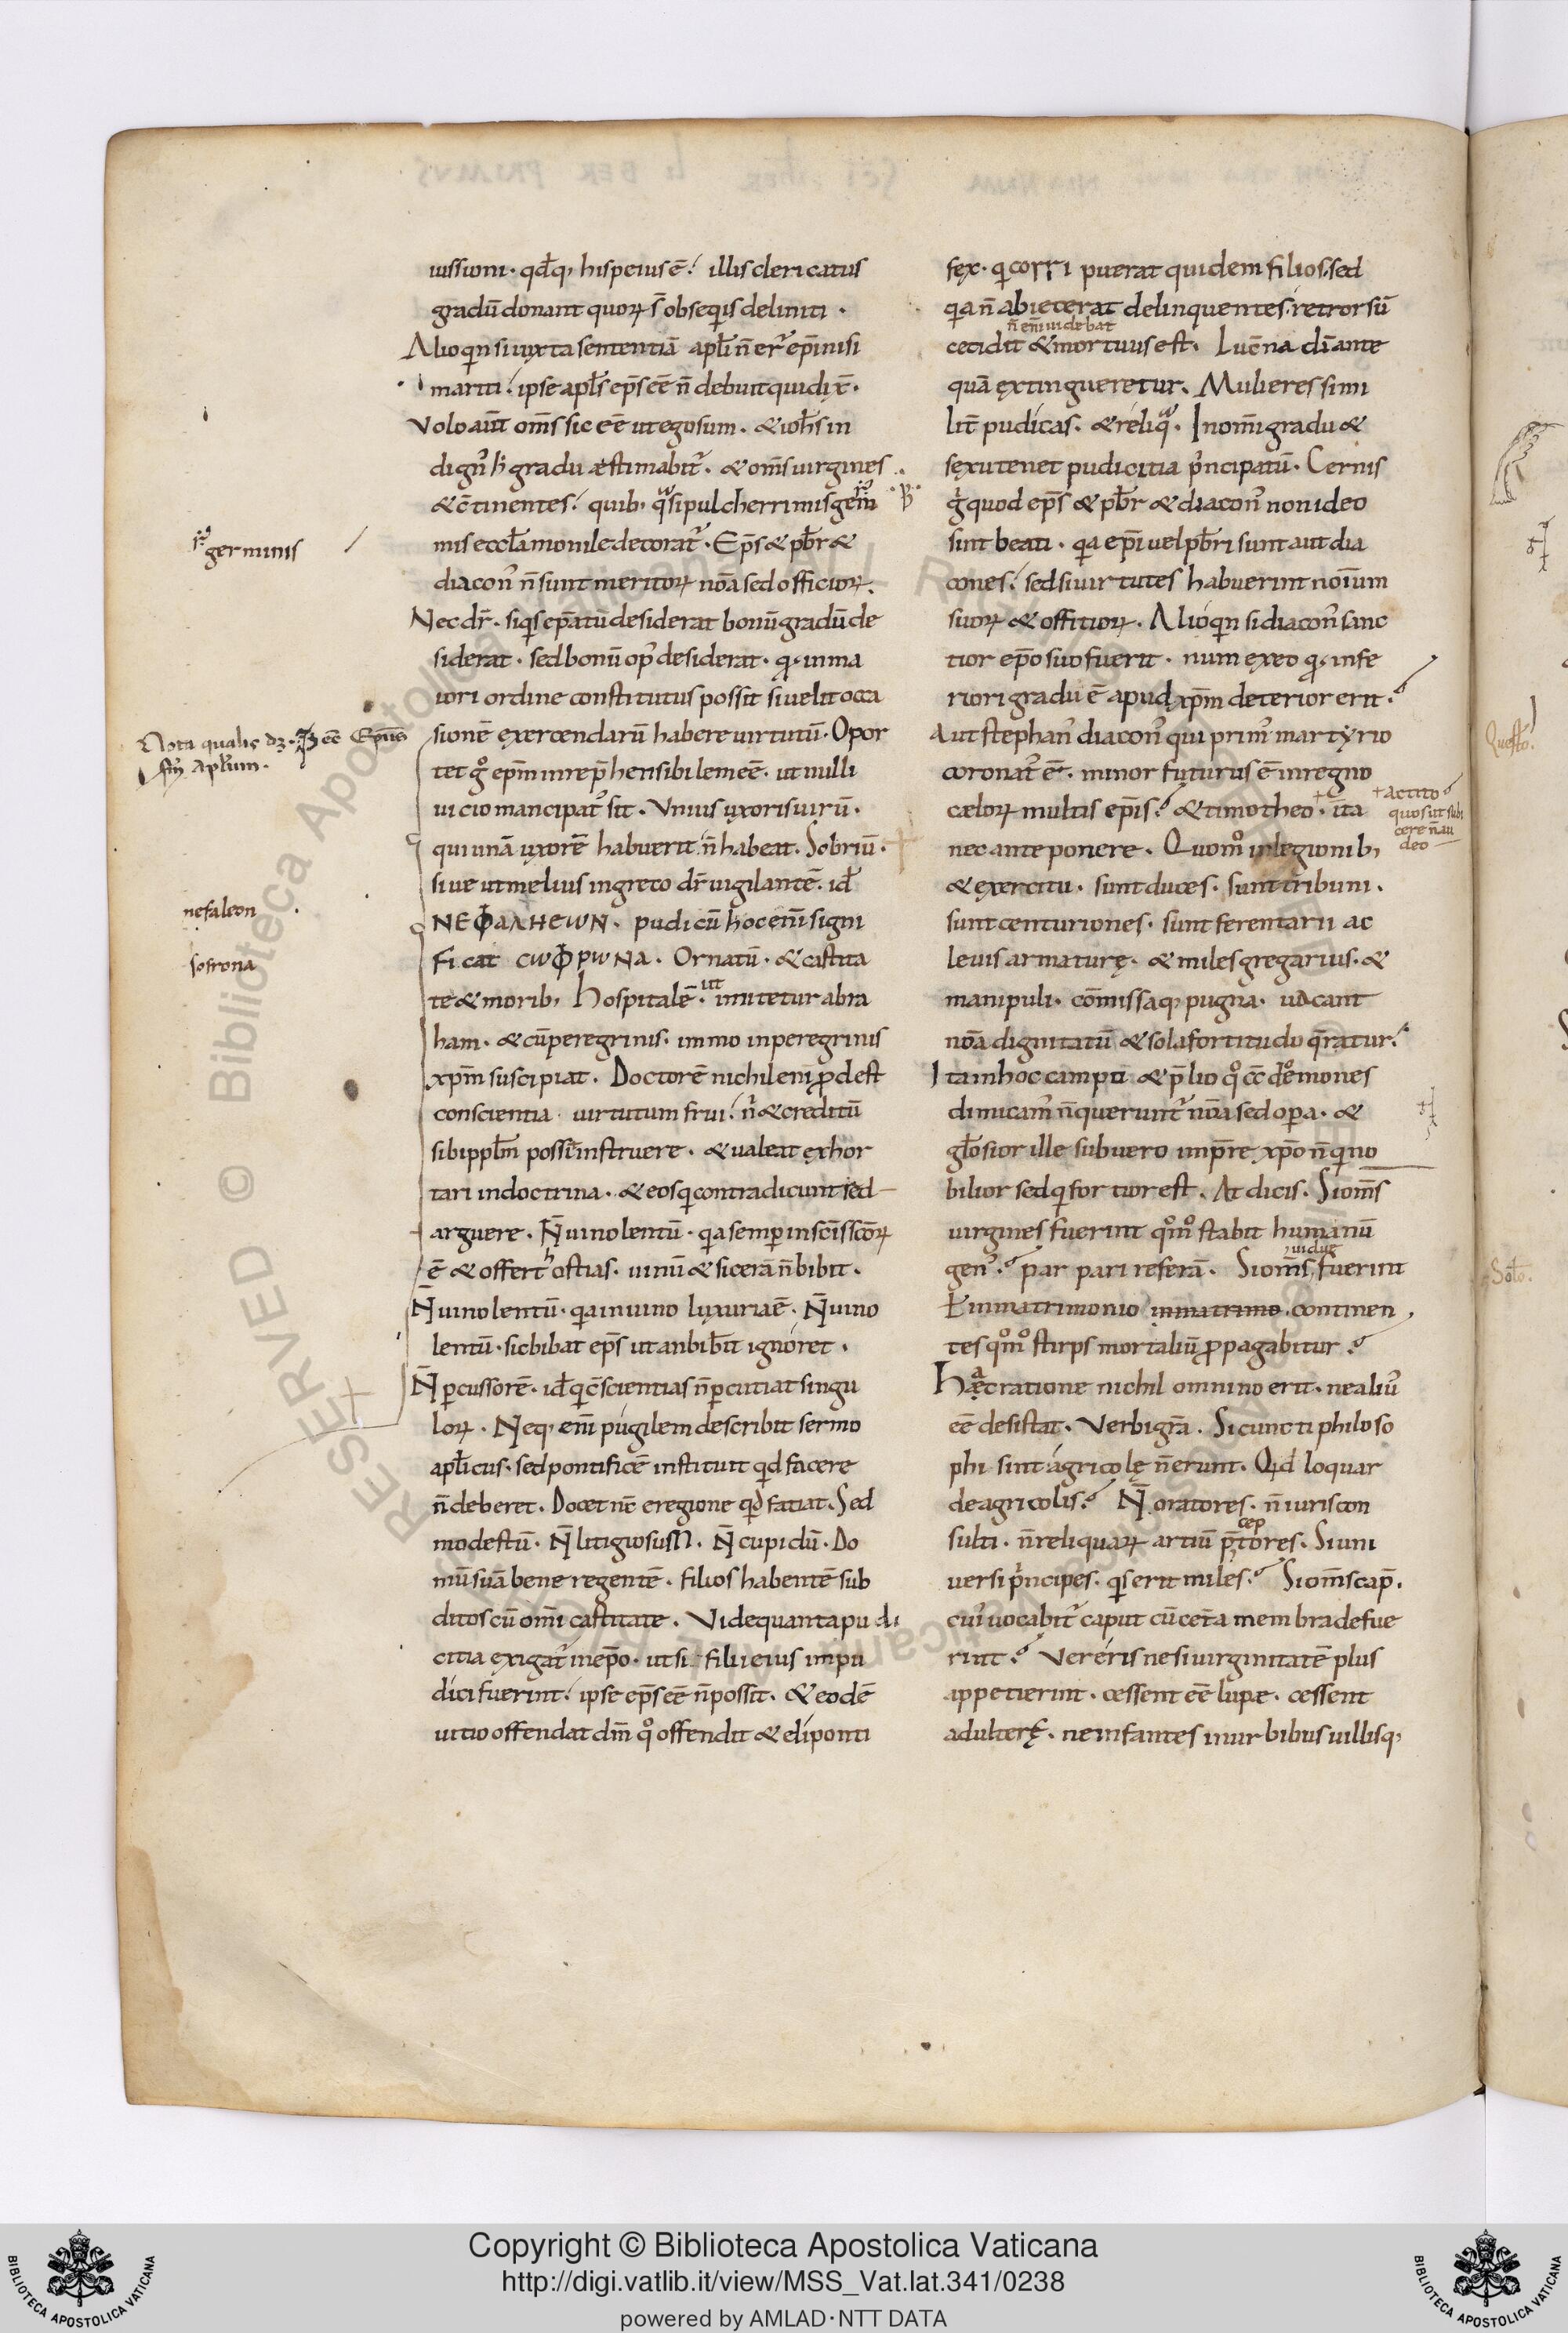 iussioni · qđq; hispeius ē ! illis clericatus
gradū donant quoꝝ s̄ obseq̇is deliniti ·
Alioqn̄ si iuxta sententiā apłi n̄ er̄ ep̄i nisi
mariti ! ipse apłs ep̄s eē n̄ debuit qui dix̄ ·
Volo aūt om̄s sic eē ut ego sum · & ioħs in
dign᾽ h̓ gradu æstimabit᷑ · & om̄s uirgines
& c̄tinentes ! quib; qͣsi pulcherrimis gem̄
mis eccła monile decorat᷑ · Ep̄s & pb̄r &
diacon᾽ n̄ sunt meritoꝝ nōa sed officioꝝ .
Nec dr̄ · siqͥs ep̄atū desiderat bonū gradū de
siderat · sed bonū op᾽ desiderat · qͥ · in ma
iori ordine constitutus possit si uelit occa
sionē exercendarū habere uirtutū · Opor
tet gͦ ep̄m inrep̄hensibilem eē · ut nulli
uicio mancipat᾽ sit · Unius uxoris uirū ·
qui unā uxorē habuerit n̄ habeat · Sobriū ·
siue ut melius in greco dr̄ uigilantē · id̄
ΝΕΦαλΗΕωΝ · pudicū hoc eni᷑ signi
ficat cωΦρωΝa · Ornatū · & castita
te & morib; Hospitalē · ut imitetur abra
ham · & cū peregrinis · immo in peregrinis
xp̄m suscipiat · Doctorē nichil eni᷑ ꝓdest
conscientia uirtutum frui ! nͥ & creditū
sibi pplm̄ possit instruere · & ualeat exhor
tari in doctrina · & eos qͥ contradicunt sed
arguere · N̄ uinolentū · qͥa semp̄ in scīs scōꝝ
ē & offert hostias · uinū & sicerā n̄ bibit ·
N̄ uinolentū · qͥa in uino luxuria ē · N̄ uino
lentū · sic bibat ep̄s ut an bibit̄ ignoret ·
N̄ pcussorē · id̄ qͥ c̄scientias n̄ pcutiat singu
loꝝ · Neq; eni᷑ pugilem describit sermo
apłicus · sed pontificē instituit qd facere
n̄ deberet · Docet nc̄ e regione qd faciat · Sed
modestū · N̄ litigiosum · N̄ cupidū · Do
mū suā bene regentē · filios habentē sub
ditos cū om̄i castitate · Vide quanta pudi
citia exigat᷑ in ep̄o · ut si filii eius impu
dici fuerint ! ipse ep̄s eē n̄ possit · & eodē
uitio offendat dm̄ qͦ offendit & eli ponti
germinis
Nota qualis dꝫ eē Ep̄us
apłum ·
nefaleon
sofrona
fex · qͥ corripuerat quidem filios · sed
qͥa n̄ abiecerat delinquentes · retrorsū
n̄ eni᷑ uidebat
cecidit & mortuus est · Lucn̄a dī ante
quā extingueretur · Mulieres simi
lit̄ pudicas · & reliqͣ · In om̄i gradu &
sexu tenet pudicitia pͥncipatū · Cernis
gͥ quod ep̄s & pb̄r & diacon᾽ non ideo
sint beati · qͥa ep̄i uel pb̄ri sunt aut dia
cones ! sed si uirtutes habuerint noi᷑um
suoꝝ & offitioꝝ · Alioqn̄ si diacon᾽ sanc
tior ep̄o suo fuerit · num ex eo qͥ · infe
riori gradu ē apud xp̄m deterior erit ?
Aut stephan᾽ diacon᾽ qui prim᾽ martyrio
coronat᾽ ē · minor futurus ē in regno
cælorꝝ multis ep̄is ? & timotheo · ita
+ ac tito
quos ut subi
cere n̄ au
deo
nec anteponere · Quom̊ in legionib;
& exercitu · sunt duces · sunt tribuni ·
sunt centuriones · sunt ferentarii ac
leuis armaturę · & miles gregarius · &
manipuli · cōmissaq; pugna · uacant
nōa dignitatū & sola fortitudo qr̄atur ·
Ita in hoc campū & p̄lio qͦ cc̄ demones
dimicam᾽ n̄ querunt᷑ nōa sed opa · &
głosior ille sub uero imp̄re xp̄o n̄ qͥ no
bilior sed qͥ fortior est · At dicis · Si om̄s
uirgines fuerint qͦm̊ stabit humanū
gen᾽ ? par pari referā · Si om̄s uiduę fuerint
ł in matrimonio in matrimo continen
tes qͦm̊ stirps mortaliū ꝓpagabitur ?
Hac ratione nichil omnino erit · ne aliū
eē desistat · Verbi gr̄a · Si cuncti philoso
phi sint agricolę n̄ erunt · Qd loquar
de agricolis ? N̄ oratores · n̄ iuris con
sulti · n̄ reliquaꝝ artiū p̄ceptores · Si uni
uersi pͥncipes · qͥs erit miles ? Si om̄s cap̄ ·
cui᾽ uocabit᷑ caput cū cet̄a membra defue
rint ? Vereris ne si uirginitatē plus
appetierint · cessent eē lupæ · cessent
adulterę · ne infantes in urbibus uillisq;
Questō ·
Solō ·
Copyright © Biblioteca Apostolica Vaticana
http://digi.vatlib.it/view/MSS_Vat.lat.341/0238
powered by AMLAD·NTT DATA
BIBLIOTECA APOSTOLICA VATICANA
BIBLIOTECA APOSTOLICA VATICANA